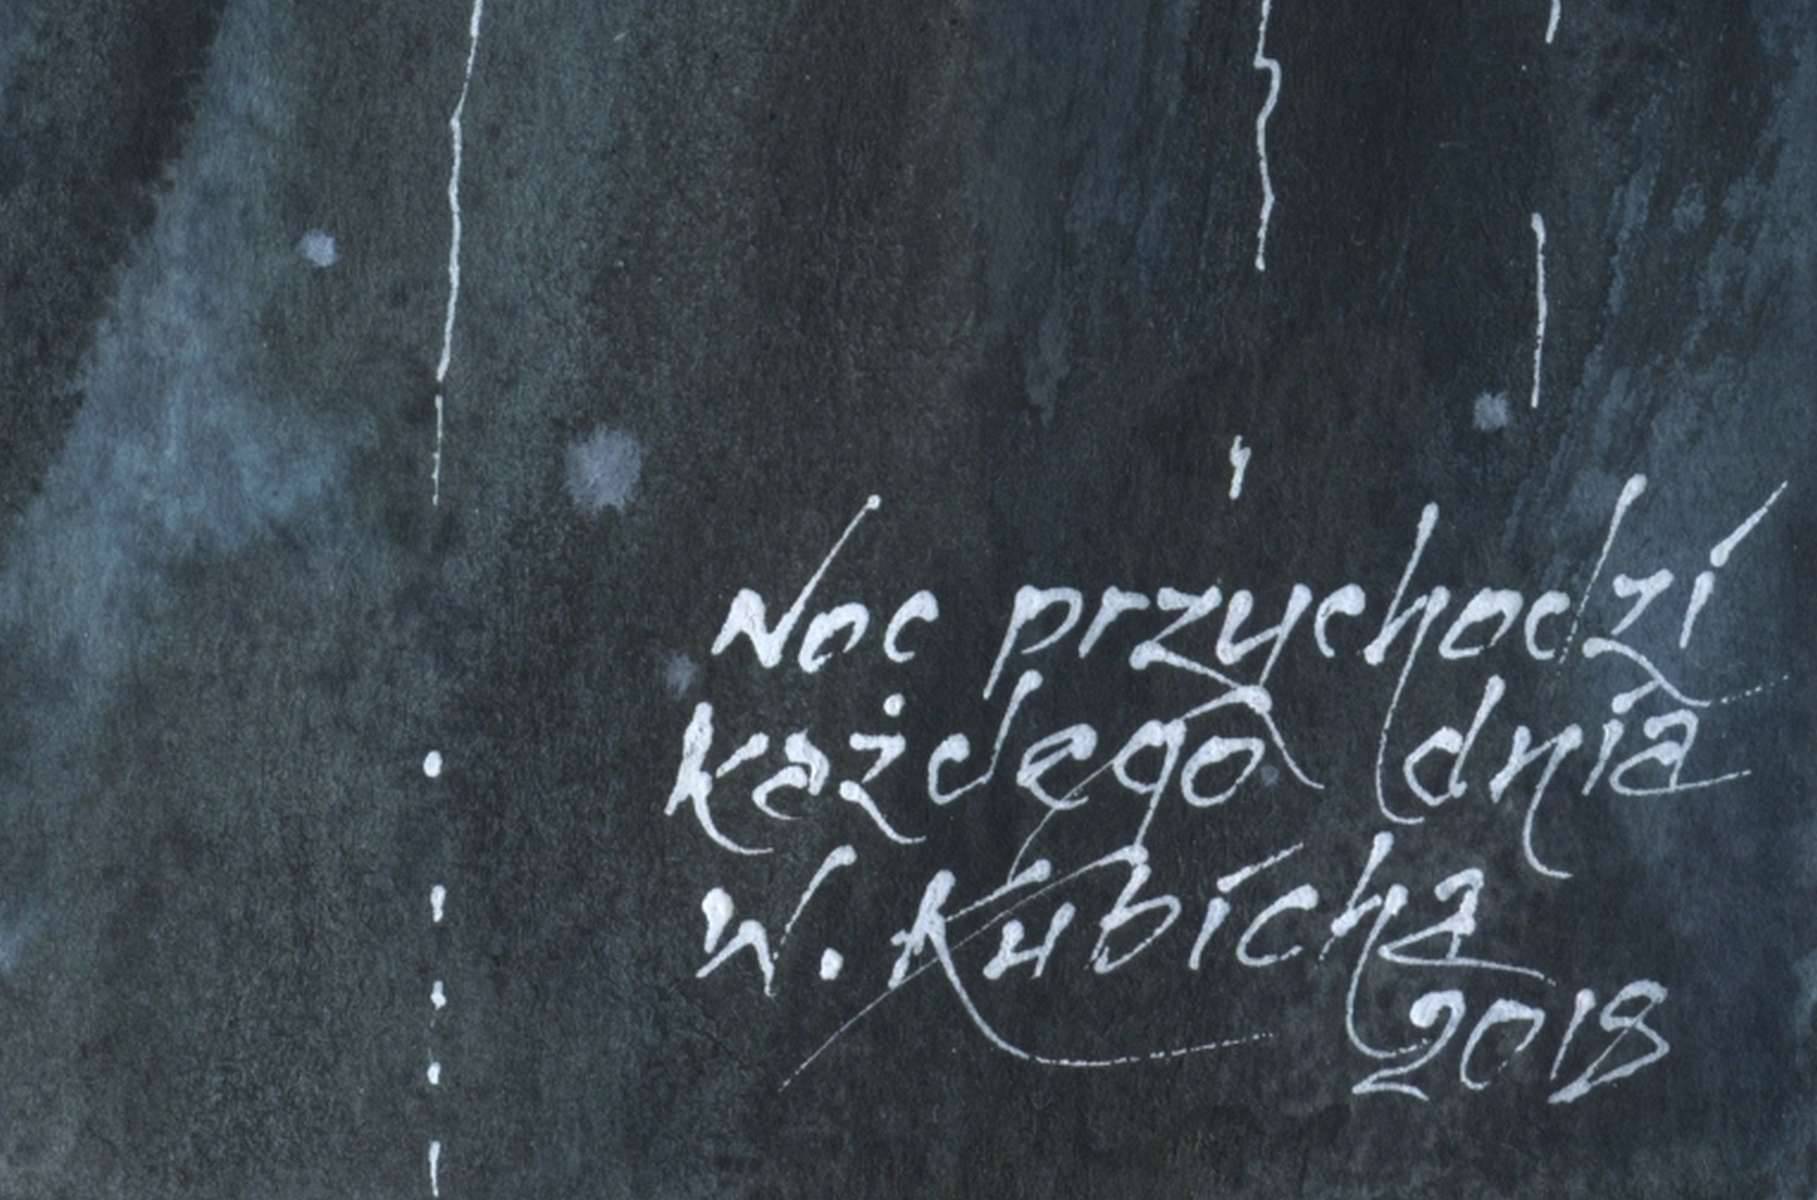 Noc przychodzi
każdego dnia
W. Kubicha
2018